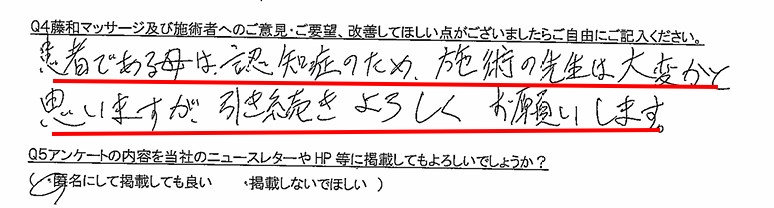 Q4藤和マッサージ及び施術者へのご意見・ご要望、改善してほしい点がございましたらご自由にご記入ください。
患者である母は、認知症のため、施術の先生は大変かと
思いますが、引き続きよろしくお願いします。
Q5アンケートの内容を当社のニュースレターやHP等に掲載してもよろしいでしょうか？
(・匿名にして掲載しても良い ・掲載しないでほしい )